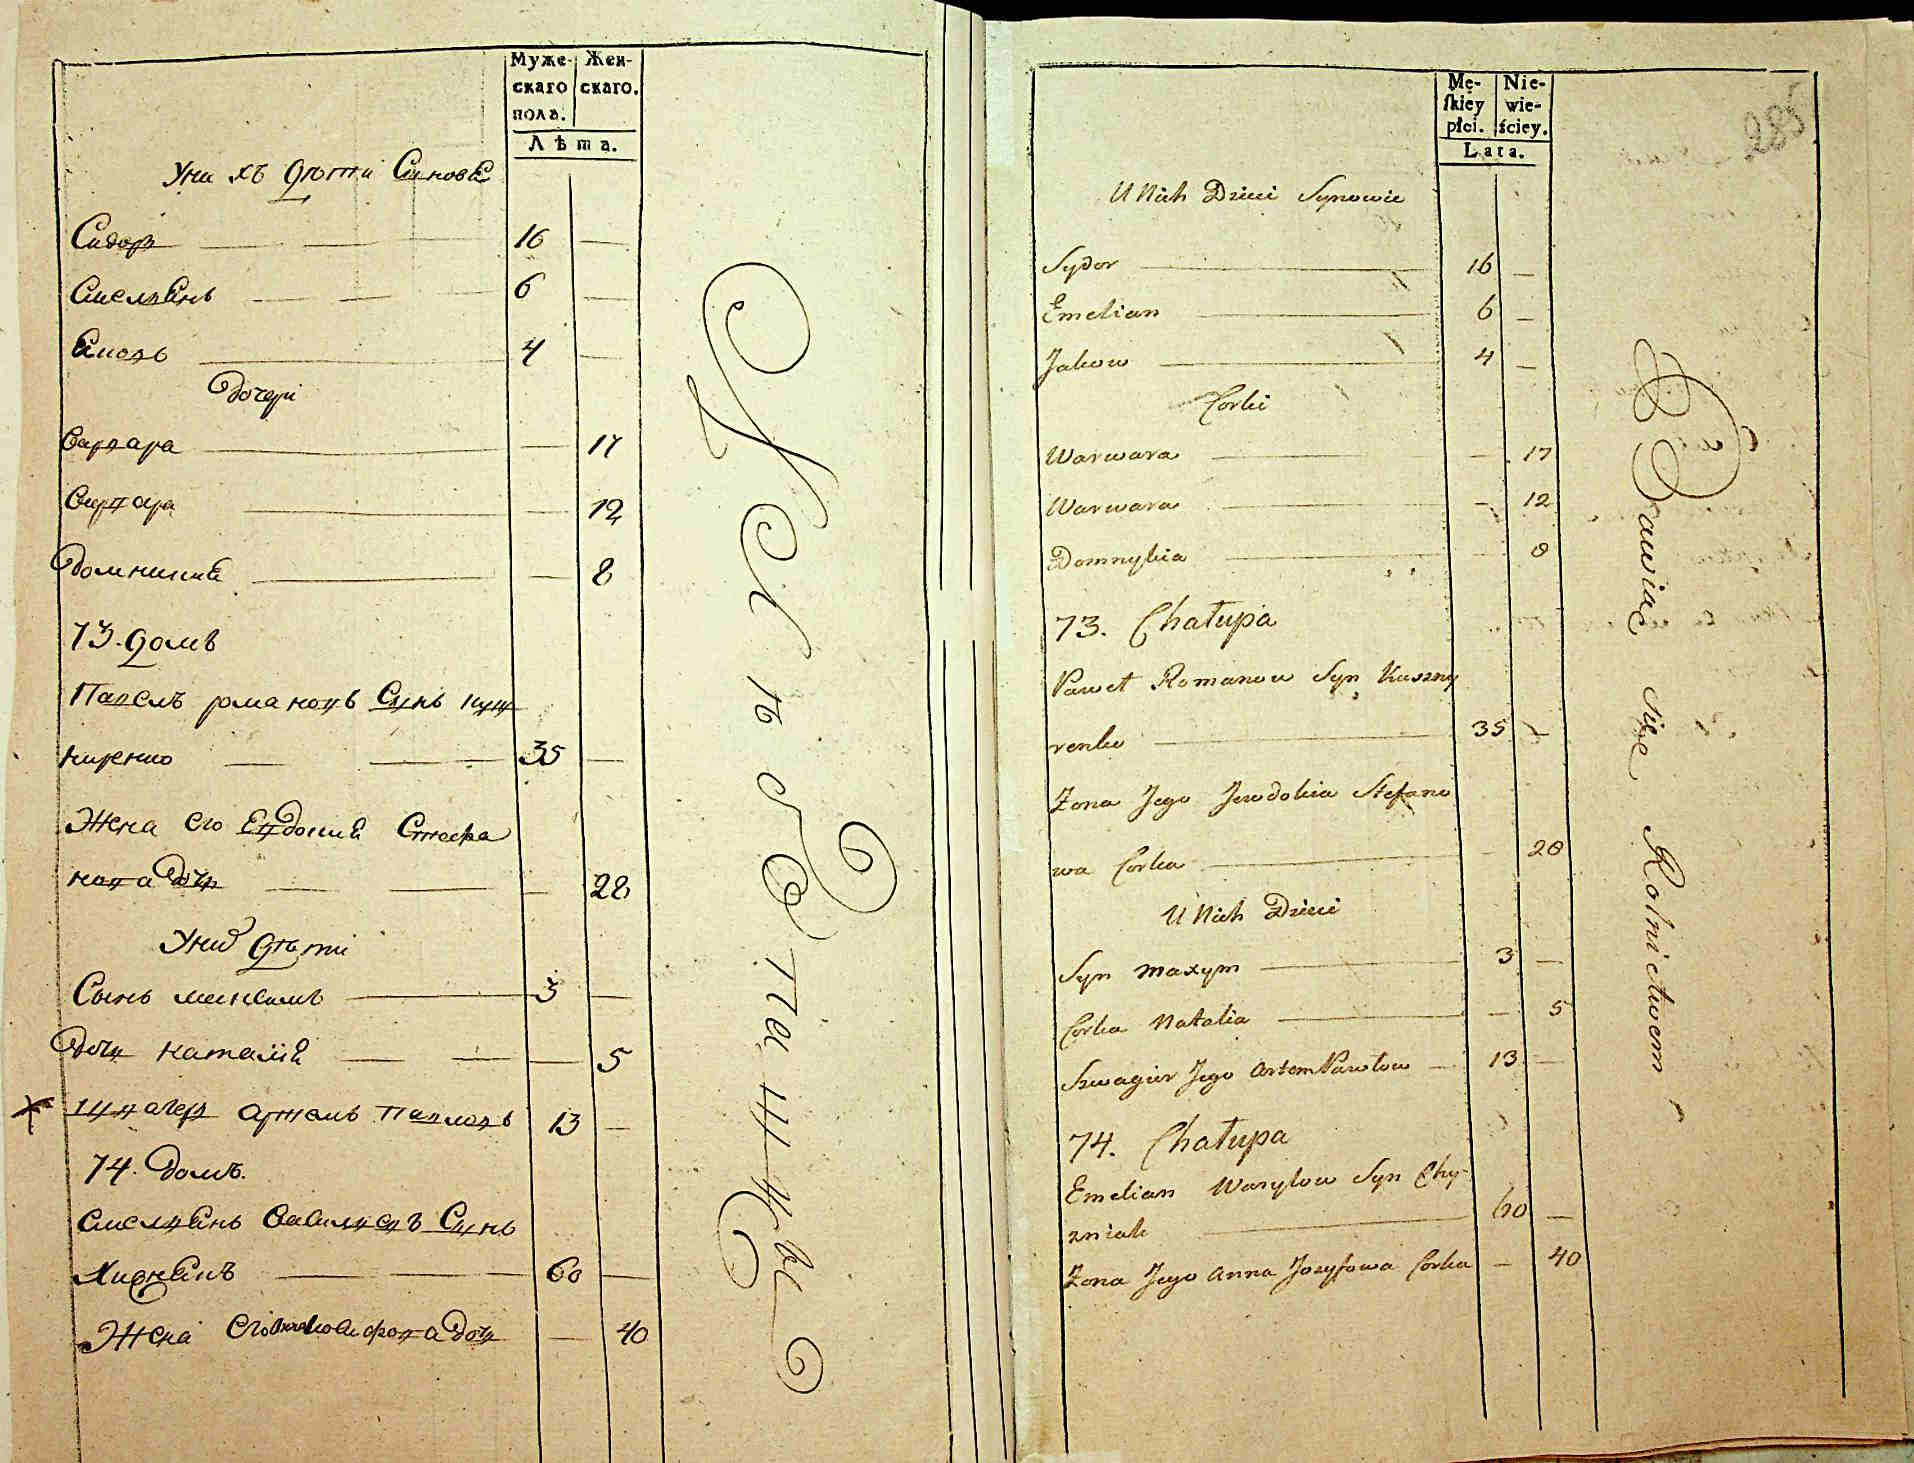 Муже-
скаго
пола.
Жен-
скаго.
Лѣта.
Уни хъ дѣти Синове
Сидоръ 16
Емельянъ 6
Яковъ 4
Дочери
Варвара 17
Варвара 12
Домникия 8
73. домъ
Павелъ романовъ Синъ куш
ниренко 35
Жена его Евдокия Стефа
нова дочь 28
Уних дѣти
Сынъ максимъ 3
Дочь наталия 5
швагер артемъ павловъ 13
74. домъ.
Емельянъ Василиевъ Синъ
60
Жена его дочь 40
Mę-
skiey
płci.
Nie-
wie-
ściey.
Lata.
285
U Nich Dzieci Synowie
Sydor 16
Emelian 6
Jakow 4
Corki
Warwara 17
Warwara 12
Domnykia 8
73. Chałupa
Paweł Romanow Syn Kuszny
renko 35
Zona Jego Jewdokia Stefano
wa Corka 28
U Nich Dzieci
Syn Maxym 3
Corka Natalia 5
Szwagier Jego Artem Pawłow 13
74. Chałupa
Emelian Wasylow Syn Chy-
zniak 60
Zona Jego Anna Jozyfowa Corka 40
Bawiąc się Rolnictwem